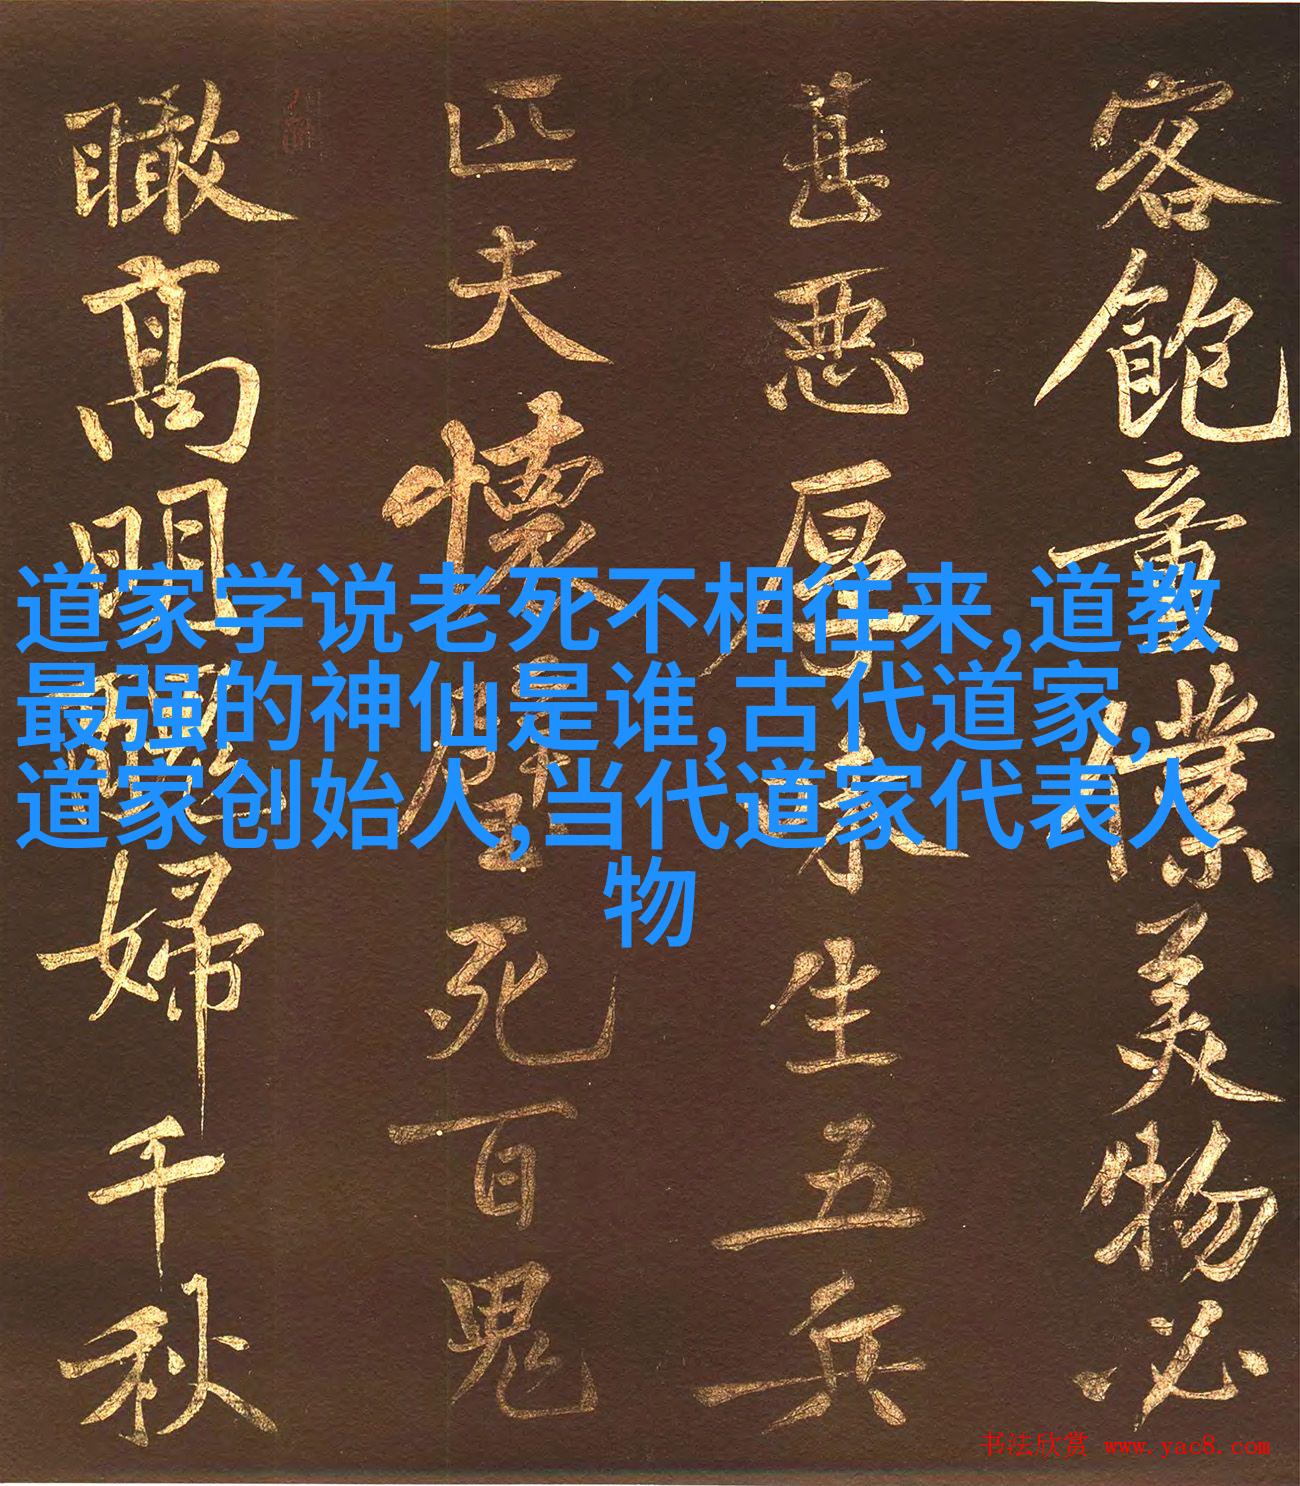 道家学说老死不相往来,道教
最强的神仙是谁,古代道家,
道家创始人,当代道家代表人
物
客飽童僕美物必
甚惡厚味生五兵
匹夫懷璧死百鬼
瞰高明醜婦千秋
书法欣赏 www.yac8.com